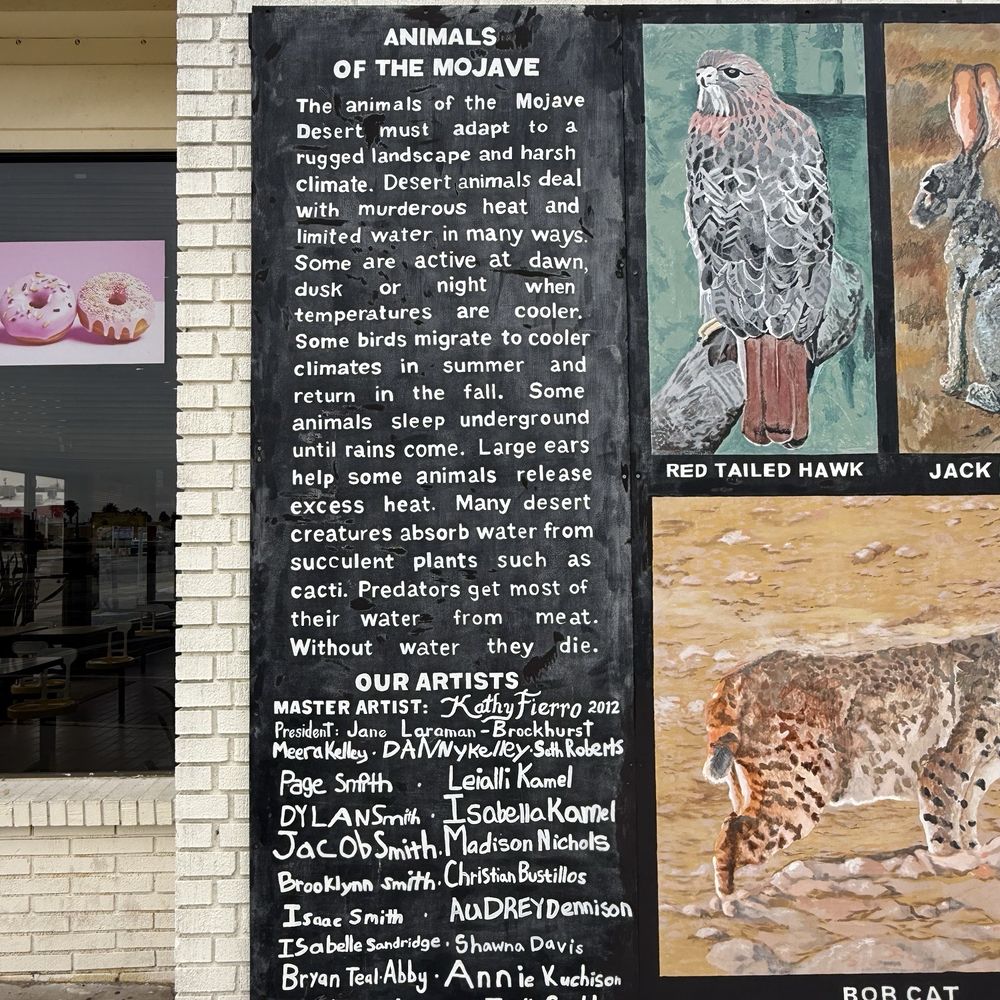 ANIMALS
OF THE MOJAVE
The animals of the Mojave
Desert must adapt to a
rugged landscape and harsh
climate. Desert animals deal
with murderous heat and
limited water in many ways.
Some are active at dawn,
dusk or night when
temperatures are cooler.
Some birds migrate to cooler
climates in summer and
return in the fall. Some
animals sleep underground
until rains come. Large ears
help some animals release
excess heat. Many desert
creatures absorb water from
succulent plants such as
cacti. Predators get most of
their water from meat.
Without water they die.
OUR ARTISTS
MASTER ARTIST: Kathy Fierro 2012
President: Jane Laraman-Brockhurst
Meera Kelley · DANNy Kelley · Seth Roberts
Page Smith · Leialli Kamel
DYLAN Smith · Isabella Kamel
Jacob Smith · Madison Nichols
Brooklynn smith · Christian Bustillos
Isaac Smith · AuDREY Dennison
ISabelle Sandridge · Shawna Davis
Bryan Teal-Abby · Annie Kuchison
RED TAILED HAWK
JACK
BOB CAT